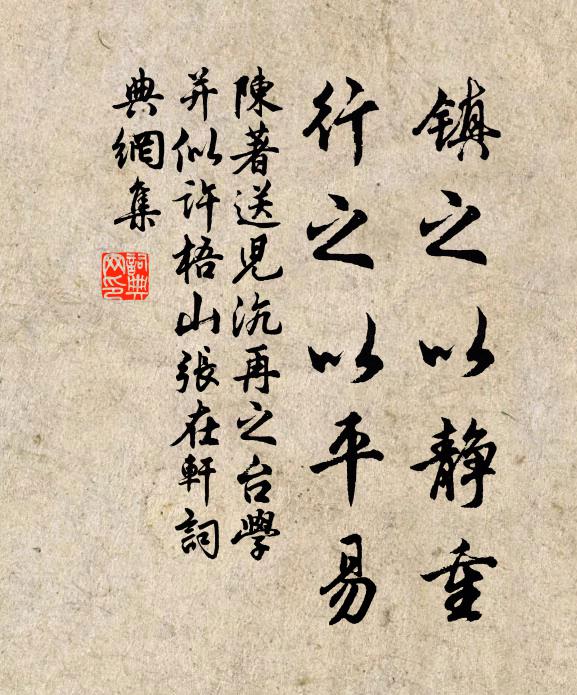 镇之以静重
行之以平易
陳著送児沆再之台學
并似许梧山張在軒詞
典網集
詞典網印